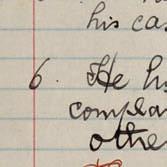 his ca
6. He h
compla
othe